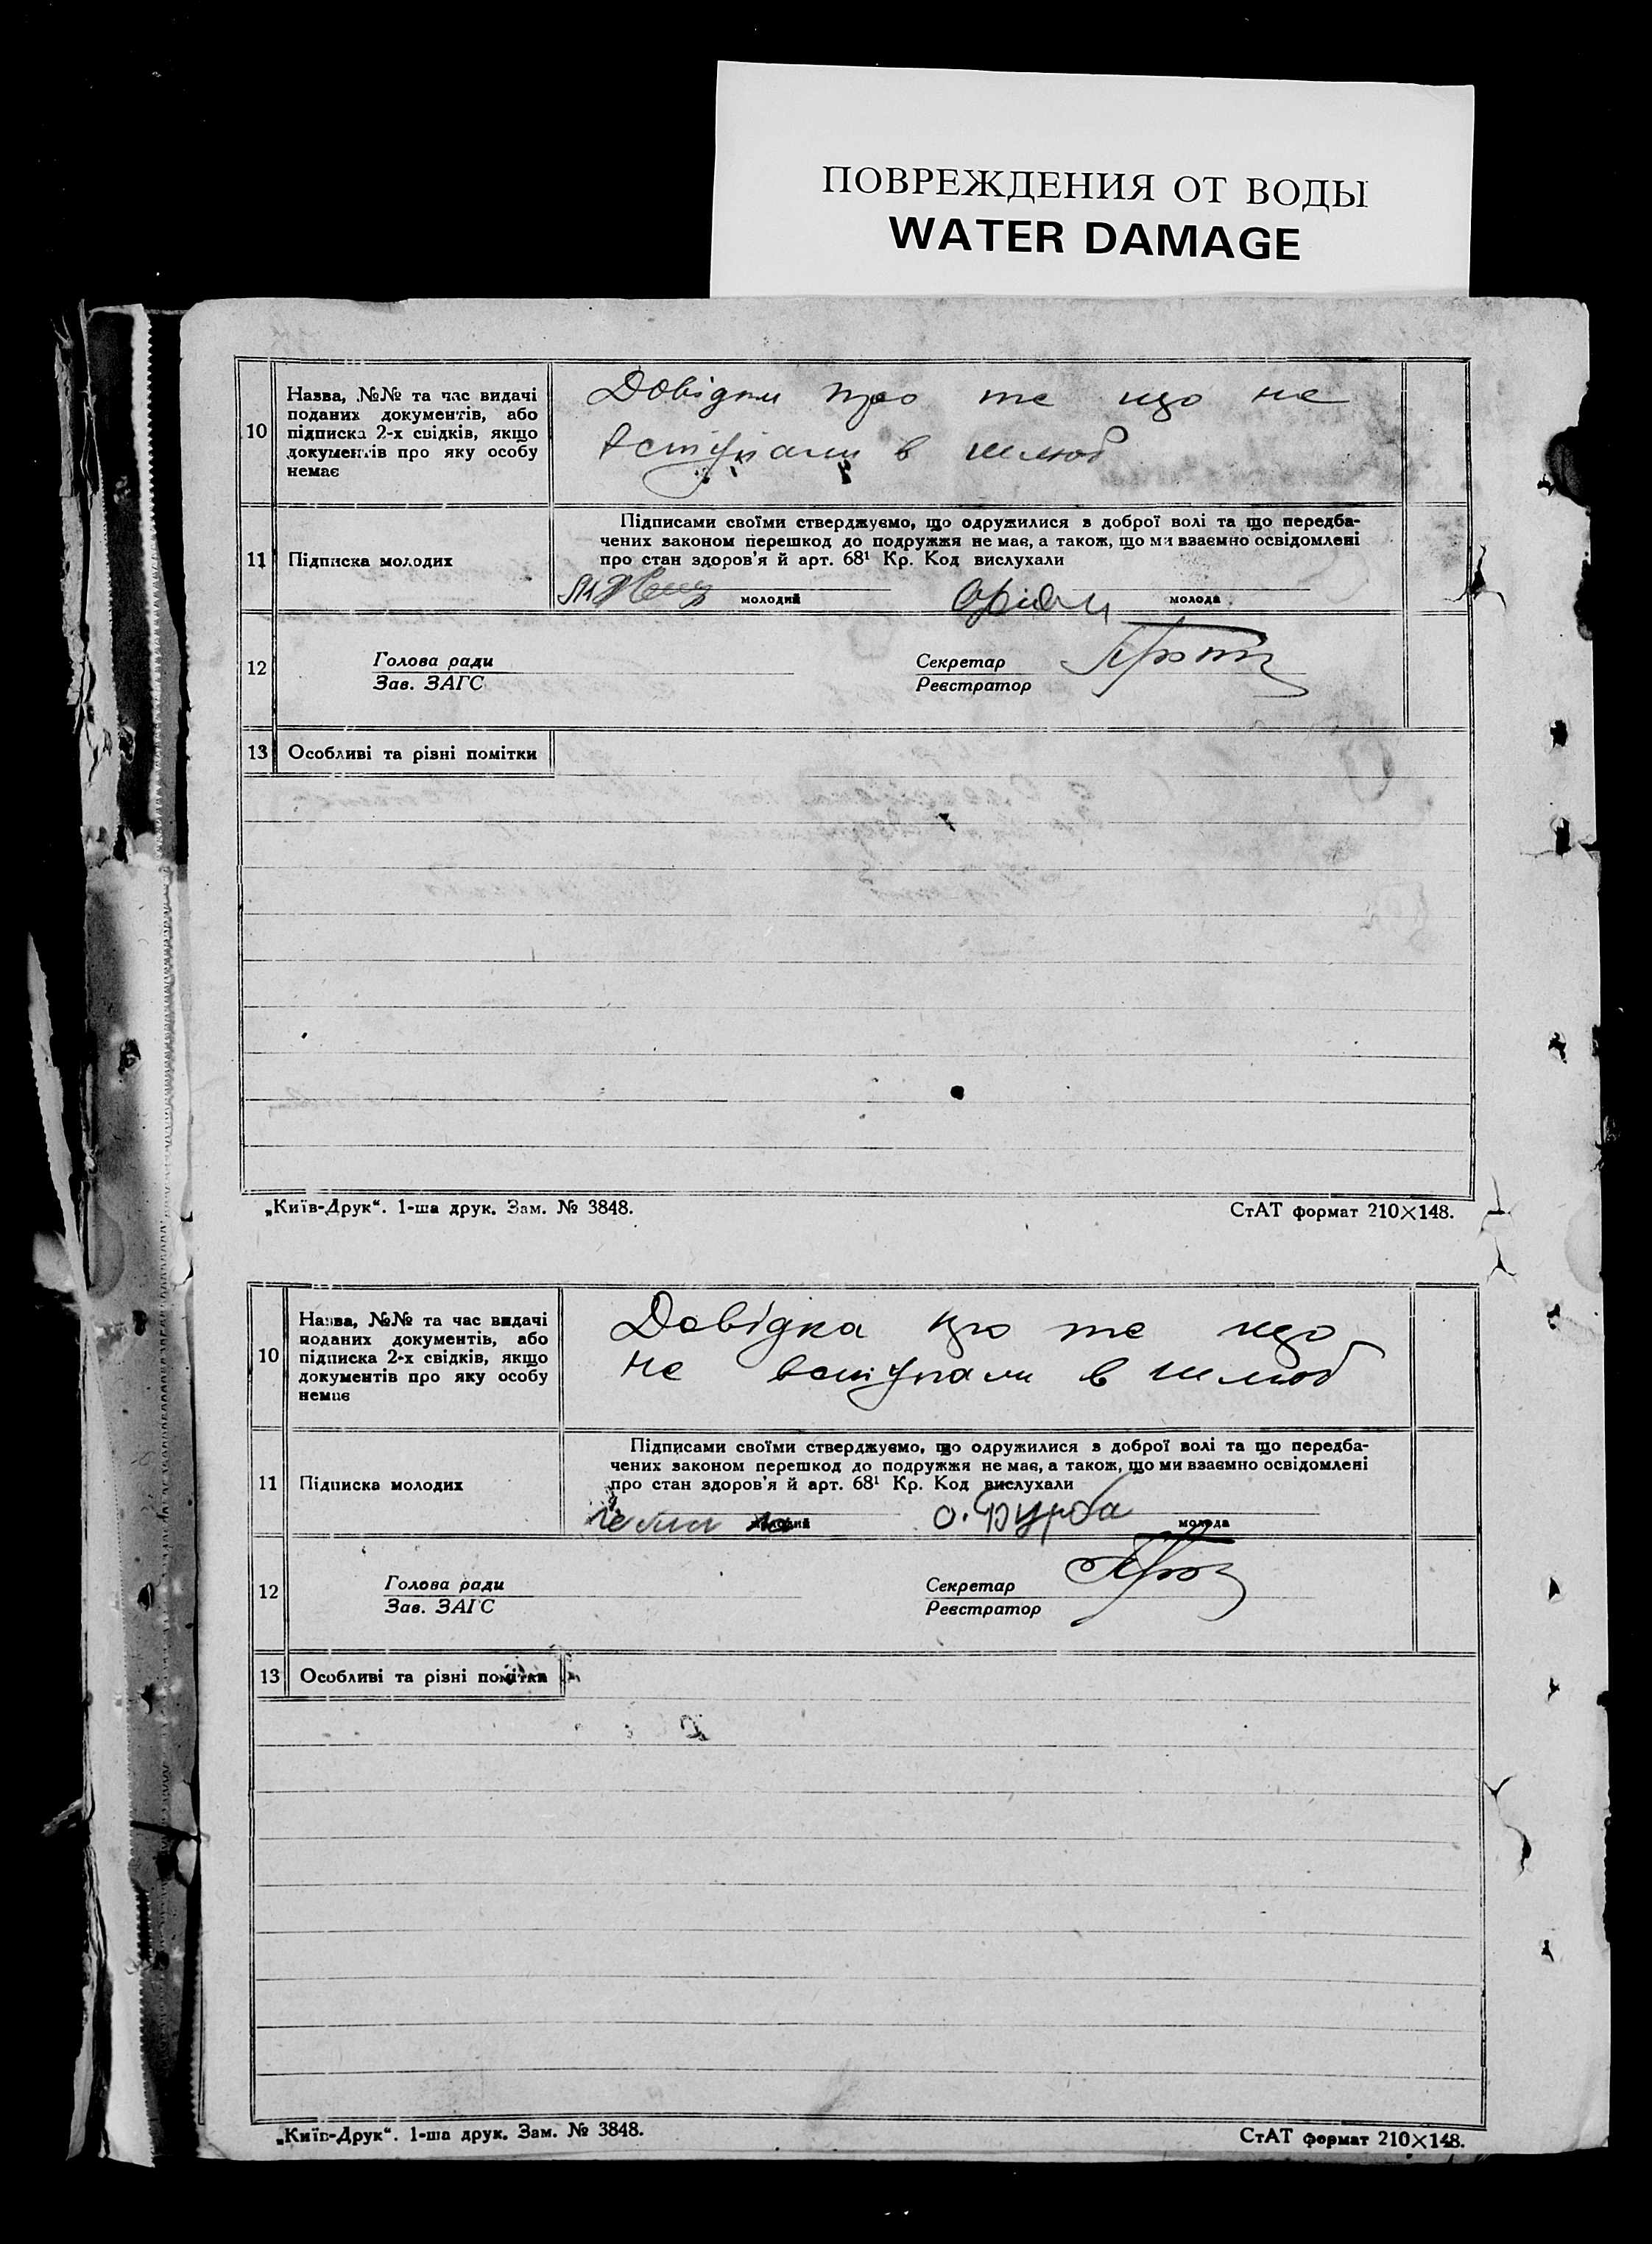 ПОВРЕЖДЕНИЯ ОТ ВОДЫ
WATER DAMAGE
10
Назва, №№ та час видачі
поданих документів, або
підписка 2-х свідків, якщо
документів про яку особу
немає
Довідки про те що не
вступали в шлюб
11
Підписка молодих
Підписами своїми стверджуємо, що одружилися в доброї волі та що передба-
чених законом перешкод до подружжя не має, а також, що ми взаємно освідомлені
про стан здоров'я й арт. 68¹ Кр. Код вислухали
молодий
молода
12
Голова ради
Зав. ЗАГС
Секретар
Реєстратор
13
Особливі та різні помітки
„Київ-Друк“. 1-ша друк. Зам. № 3848.
СтАТ формат 210×148.
10
Назва, №№ та час видачі
поданих документів, або
підписка 2-х свідків, якщо
документів про яку особу
немає
Довідка про те що
не вступали в шлюб
11
Підписка молодих
Підписами своїми стверджуємо, що одружилися в доброї волі та що передба-
чених законом перешкод до подружжя не має, а також, що ми взаємно освідомлені
про стан здоров'я й арт. 68¹ Кр. Код вислухали
молодий
о. Бурба
молода
12
Голова ради
Зав. ЗАГС
Секретар
Реєстратор
13
Особливі та різні помітки
„Київ-Друк“. 1-ша друк. Зам. № 3848.
СтАТ формат 210×148.